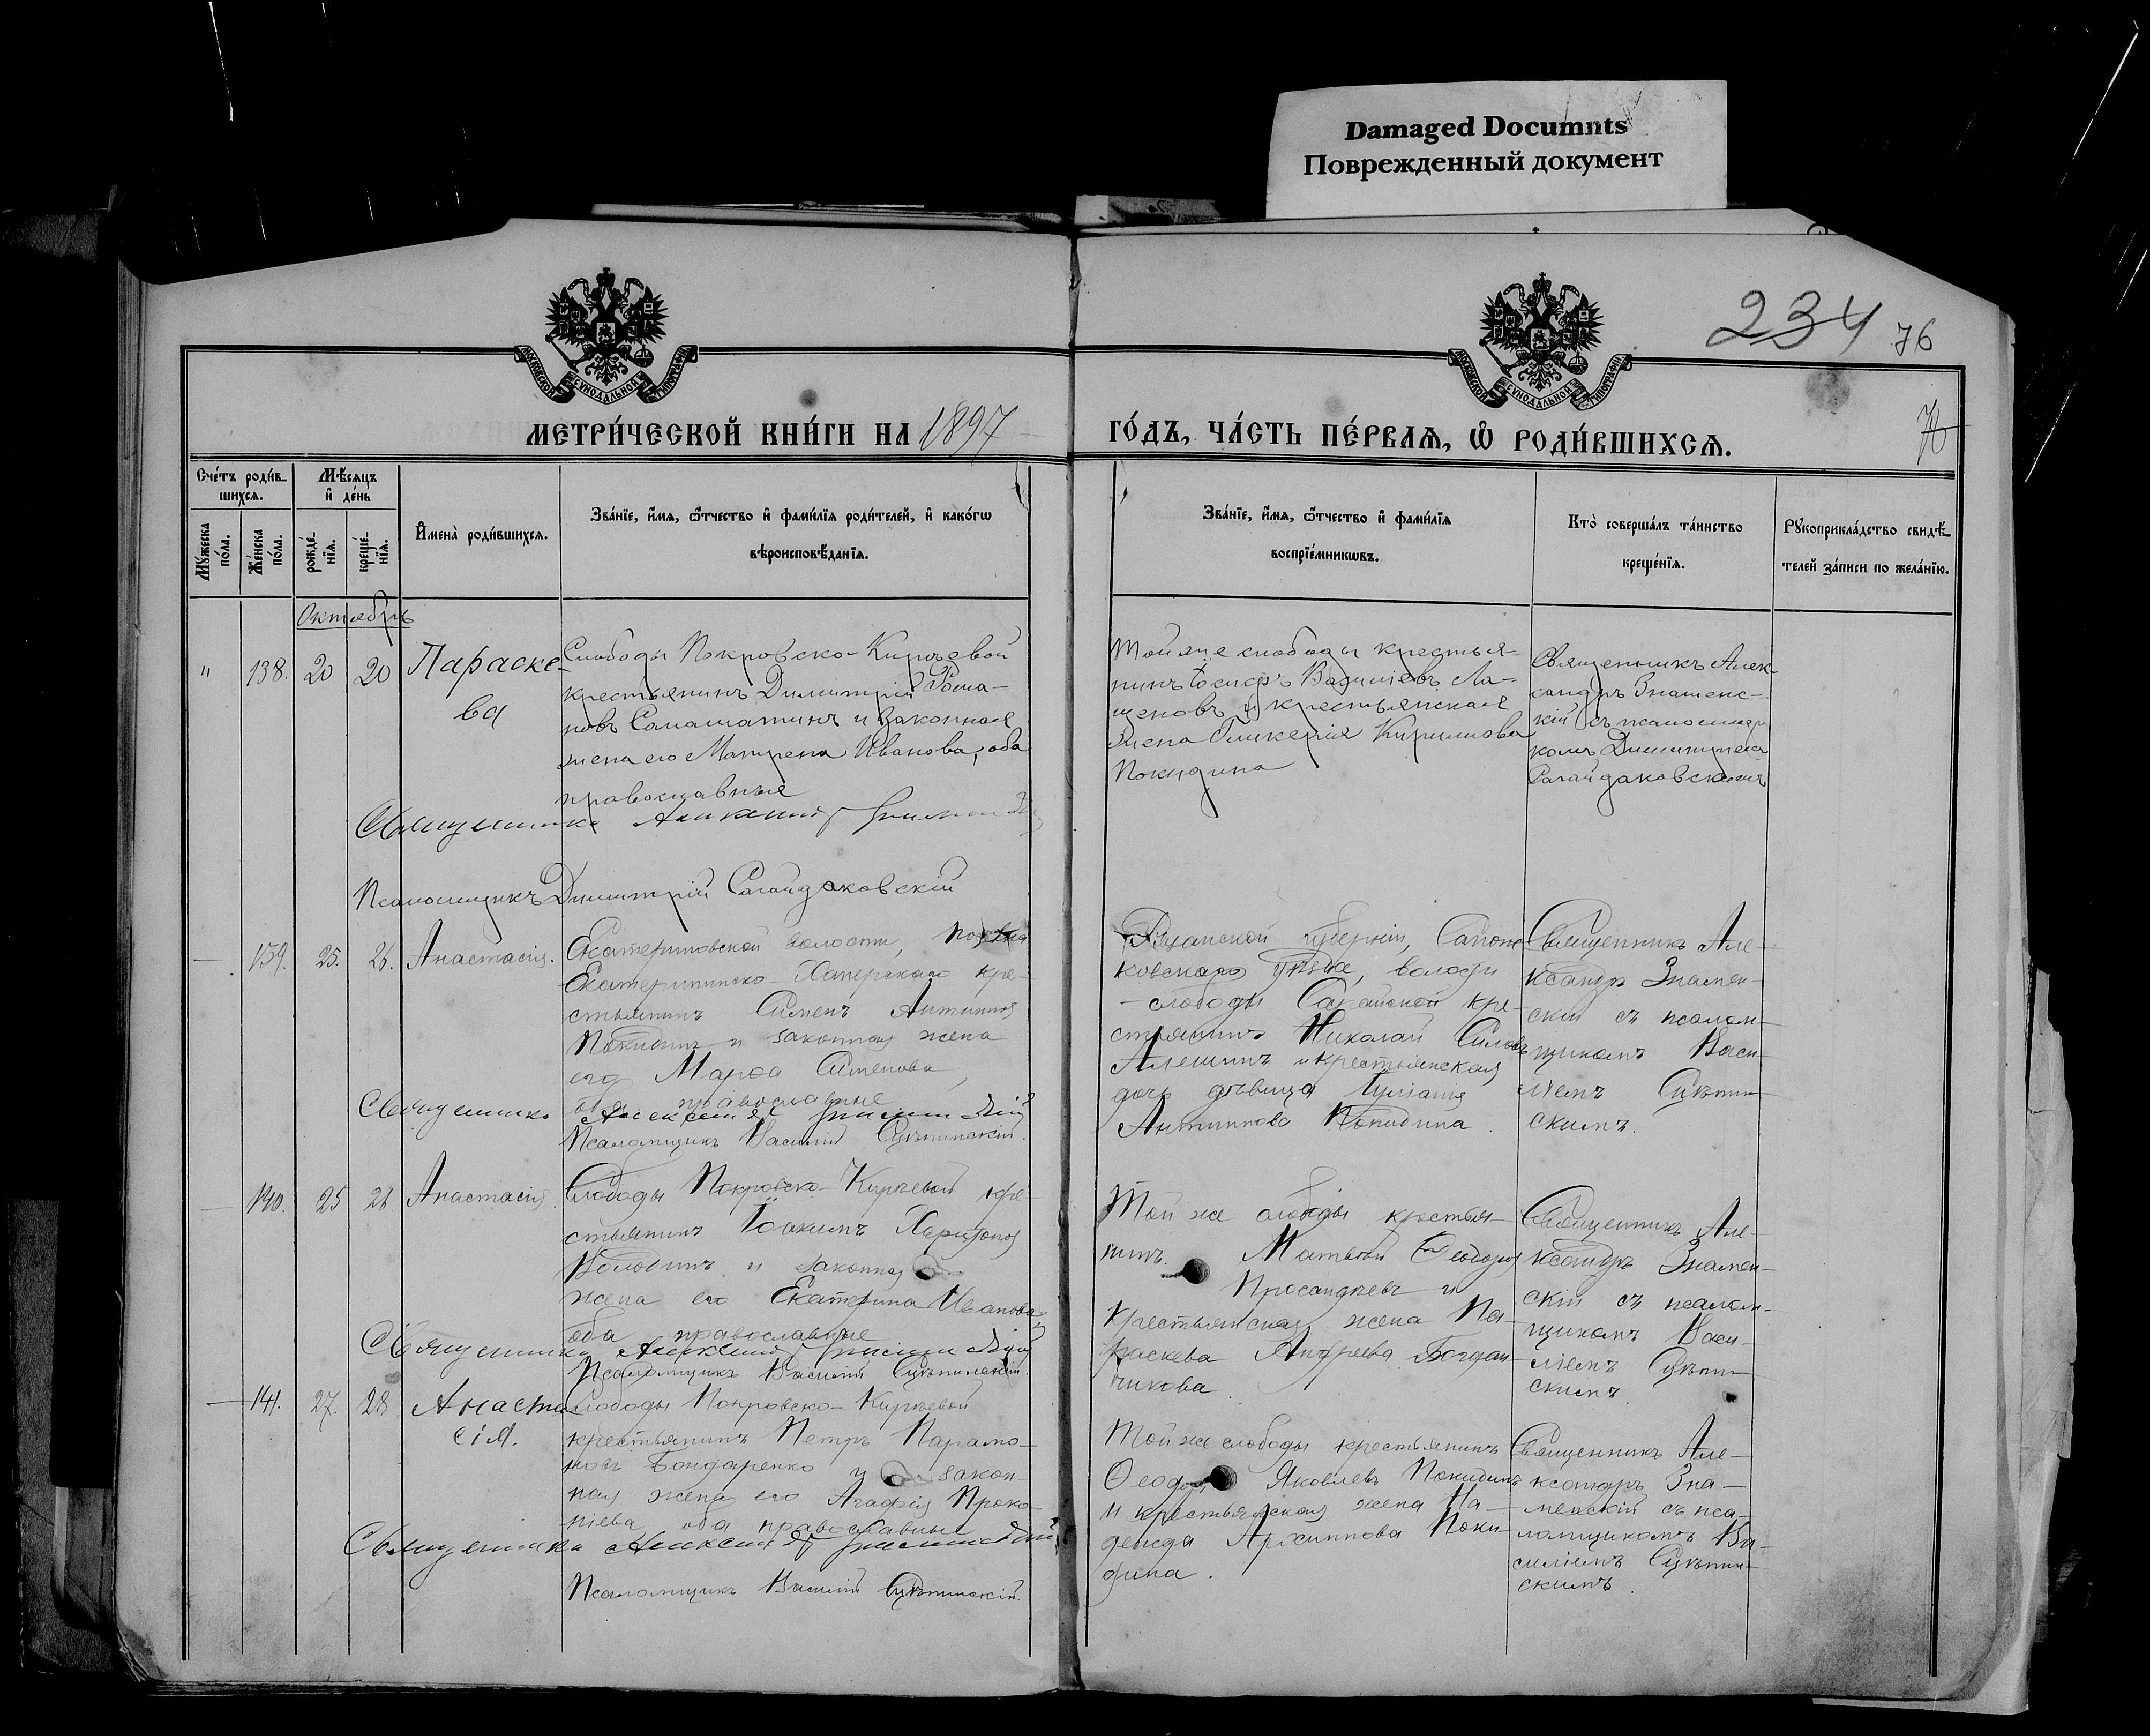 Damaged Documnts
Поврежденный документ
234 76
МОСКОВСКОЙ СѴНОДАЛЬНОЙ ТИПОГРАФІИ
МОСКОВСКОЙ СѴНОДАЛЬНОЙ ТИПОГРАФІИ
МЕТРИ́ЧЕСКОЙ КНИ́ГИ НА 1897
ГО́ДЪ, ЧА́СТЬ ПЕ́РВАѦ, Ѽ РОДИ́ВШИХСѦ.
76
Сче́тъ роди́в-
шихся.
Мѣ́сяцъ
и҆ де́нь
Мꙋ́жеска по́ла.
Же́нска по́ла.
рожде́-
нїѧ.
креще́-
нїѧ.
И҆мена̀ роди́вшихся.
Зва́нїе, и҆́мя, ѻ҆́тчество и҆ фами́лїя роди́телей, и҆ како́гѡ
вѣроисповѣ́данїя.
Зва́нїе, и҆́мя, ѻ҆́тчество и҆ фами́лїя
воспрїе́мникѡвъ.
Кто̀ соверша́лъ та́инство
креще́нїя.
Рꙋкоприкла́дство свидѣ́-
телей за́писи по жела́нїю.
Октябрь
" 138. 20 20 Параске-
ва
Слободы Покровско-Киръевой
крестьянинъ Димитрій Рома-
новъ Саламатинъ и законная
жена его Матрена Иванова, оба
православные
Священникъ Алексий
Псаломщикъ Димитрій Сагайдаковскій
Той же слободы крестья-
нинъ Іосифъ Васильевъ Ла-
щеновъ и крестьянская
жена Гликерія Кирилова
Покидина
Священникъ Алек-
сандръ Знаменс-
кій съ псаломщи-
комъ Димитріемъ
Сагайдаковскимъ
— 139. 25. 26. Анастасія.
Екатериновской волости,
Екатерининско-Хаперскаго кре-
стьянинъ Сименъ Антиповъ
Покидинъ и законная жена
его Марѳа Сименова,
оба православные
Священникъ Алексий
Псаломщикъ Василій
Рязанской губерніи, Сапож
ковскаго уѣзда, волости
— слободы Сараиской кре-
стьянинъ Николай Силовъ
Алешинъ и крестьянская
дочь дѣвица Іуліанія
Антипова Покидина.
Священникъ Але-
ксандръ Знамен-
скій съ псалом-
щикомъ Васи-
ліемъ
скимъ.
— 140. 25 26 Анастасія.
Слободы Покровско-Киръевой кре-
стьянинъ Іоакимъ Харитоновъ
Воловинъ и законная
жена его Екатерина Иванова,
оба православные
Священникъ Алексий
Псаломщикъ Василій
Той же слободы крестья-
нинъ. Матвѣй Ѳеодоровъ
Просандѣевъ и
крестьянская жена Па-
раскева Андреева Богдан-
чикова.
Священникъ Але-
ксандръ Знамен-
скій съ псалом-
щикомъ Васи-
ліемъ
скимъ.
— 141. 27. 28 Анаста
сія.
Слободы Покровско-Киръевой
крестьянинъ Петръ Парамо-
новъ Бондаренко и закон-
ная жена его Агафія Проко-
піева, оба православные
Священникъ Алексий
Псаломщикъ Василій
Той же слободы крестьянинъ
Ѳеодоръ Яковлевъ Покидинъ
и крестьянская жена На-
дежда Архиппова Поки-
дина.
Священникъ Але-
ксандръ Зна-
менскій съ пса-
ломщикомъ Ва-
силіемъ
скимъ.